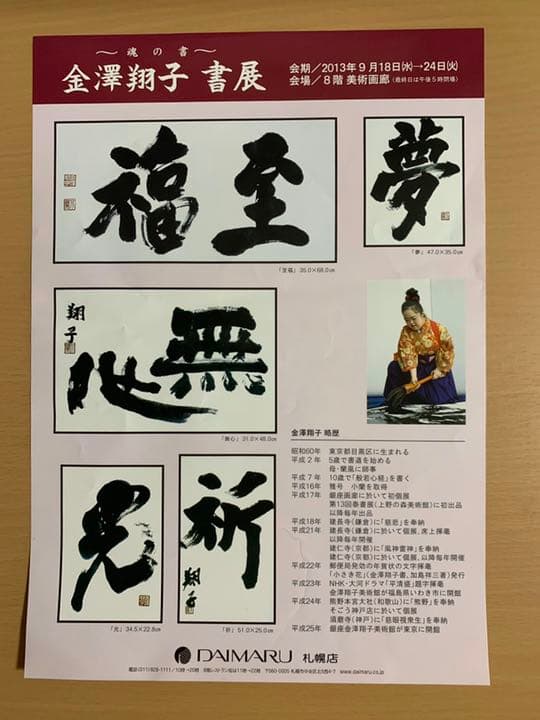 〜魂の書〜
金澤翔子 書展
会期／2013年9月18日(水)→24日(火)
会場／8階 美術画廊〈最終日は午後5時閉場〉
至福
「至福」 35.0×68.0㎝
夢
「夢」 47.0×35.0㎝
無心
翔子
「無心」 31.0×48.0㎝
光
「光」 34.5×22.8㎝
祈
翔子
「祈」 51.0×25.0㎝
金澤翔子 略歴
昭和60年 東京都目黒区に生まれる
平成 2 年 5歳で書道を始める
母・蘭風に師事
平成 7 年 10歳で「般若心経」を書く
平成16年 雅号 小蘭を取得
平成17年 銀座画廊に於いて初個展
第13回泰書展（上野の森美術館）に初出品
以降毎年出品
平成18年 建長寺（鎌倉）に「慈悲」を奉納
平成21年 建長寺（鎌倉）に於いて個展、席上揮毫
以降毎年開催
建仁寺（京都）に「風神雷神」を奉納
建仁寺（京都）に於いて個展、以降毎年開催
平成22年 郵便局発効の年賀状の文字揮毫
「小さき花」（金澤翔子書、加島祥三著）発行
平成23年 NHK・大河ドラマ「平清盛」題字揮毫
金澤翔子美術館が福島県いわき市に開館
平成24年 熊野本宮大社（和歌山）に「熊野」を奉納
そごう神戸店に於いて個展
須磨寺（神戸）に「慈眼視衆生」を奉納
平成25年 銀座金澤翔子美術館が東京に開館
DAIMARU 札幌店
電話(011)828-1111／10時→20時 8階レストラン街は11時→22時 〒060-0005 札幌市中央区北5西4-7 www.daimaru.co.jp